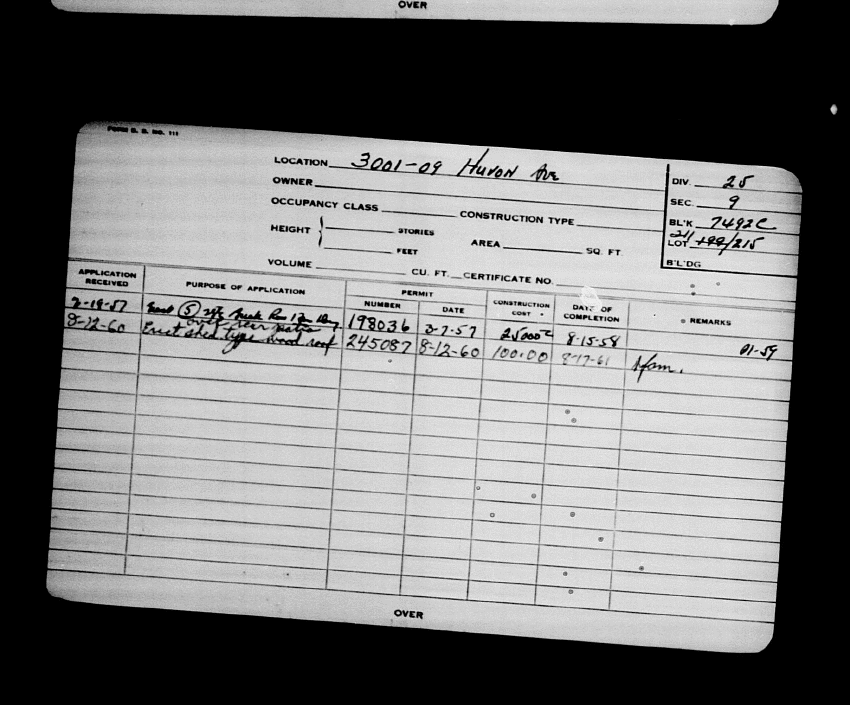 OVER
FORM B. D. NO. 111
LOCATION 3001-09 Huron Ave
DIV. 25
OWNER
SEC. 9
OCCUPANCY CLASS CONSTRUCTION TYPE
BL'K 7492C
HEIGHT STORIES
FEET
AREA SQ. FT.
LOT 211/215
B'L'DG
VOLUME CU. FT. CERTIFICATE NO.
APPLICATION RECEIVED PURPOSE OF APPLICATION PERMIT NUMBER DATE CONSTRUCTION COST DATE OF COMPLETION REMARKS
2-19-57 (5) 198036 3-7-57 25000 8-15-58 01-59
over rear patio
8-12-60 Erect shed type wood roof 245087 8-12-60 100.00 8-17-61
OVER